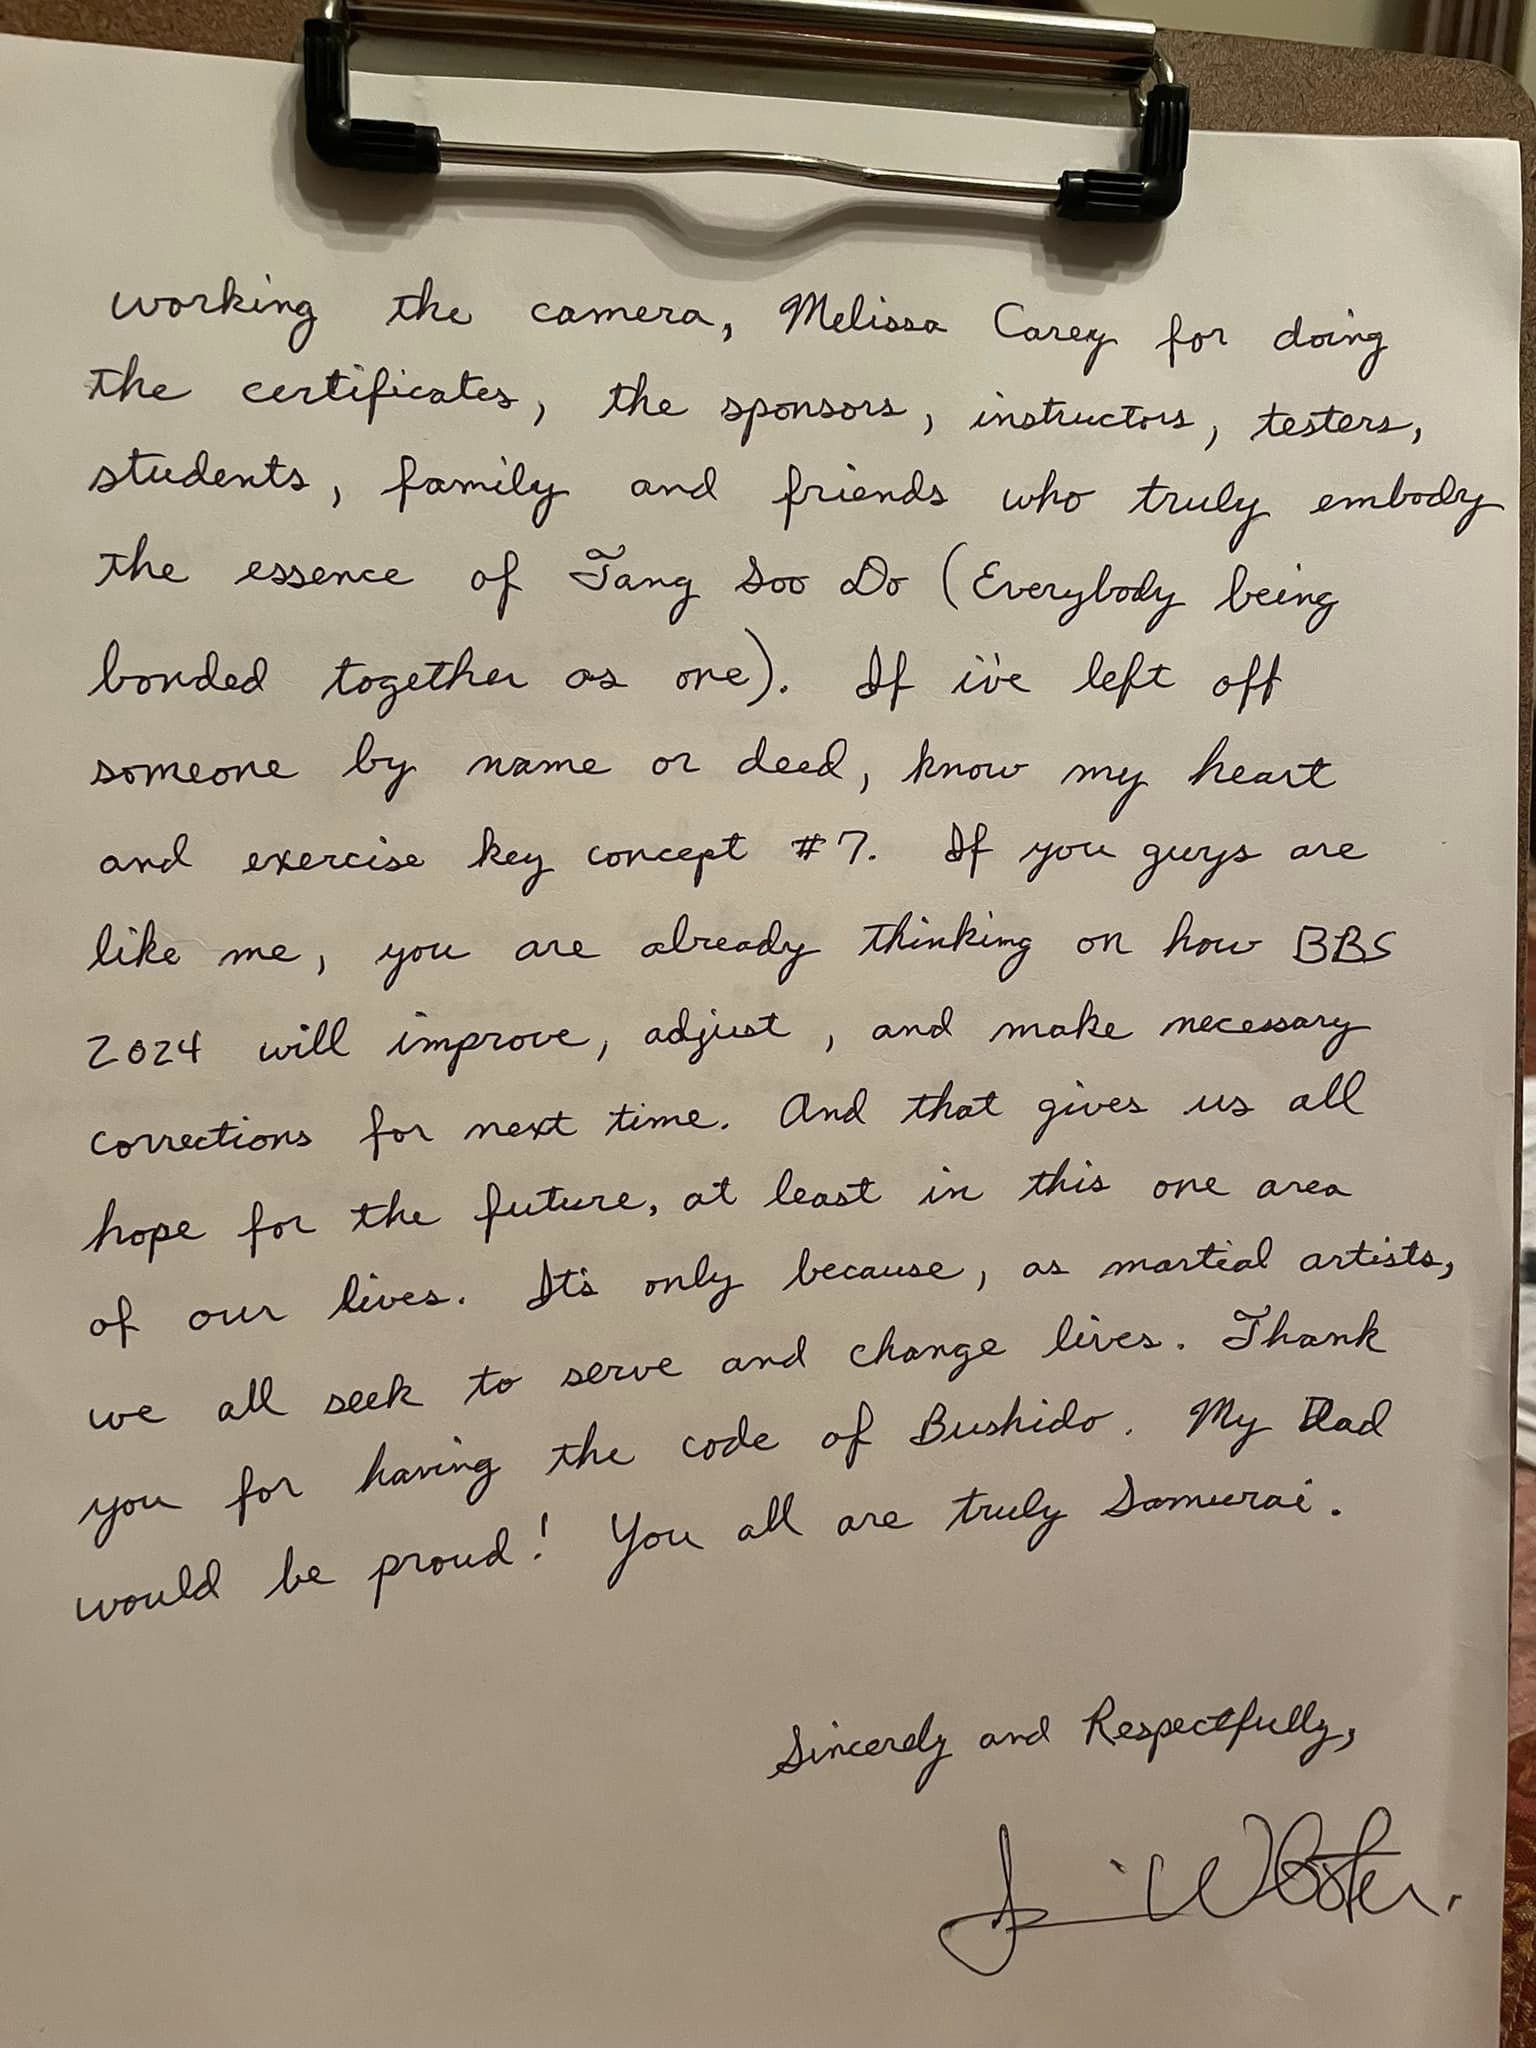 working the camera, Melissa Carey for doing
the certificates, the sponsors, instructors, testers,
students, family and friends who truly embody
the essence of Tang Soo Do (Everybody being
bonded together as one). If i've left off
someone by name or deed, know my heart
and exercise key concept #7. If you guys are
like me, you are already thinking on how BBS
2024 will improve, adjust, and make necessary
corrections for next time. And that gives us all
hope for the future, at least in this one area
of our lives. It's only because, as martial artists,
we all seek to serve and change lives. Thank
you for having the code of Bushido. My Dad
would be proud! You all are truly Samurai.
Sincerely and Respectfully,
Webster.